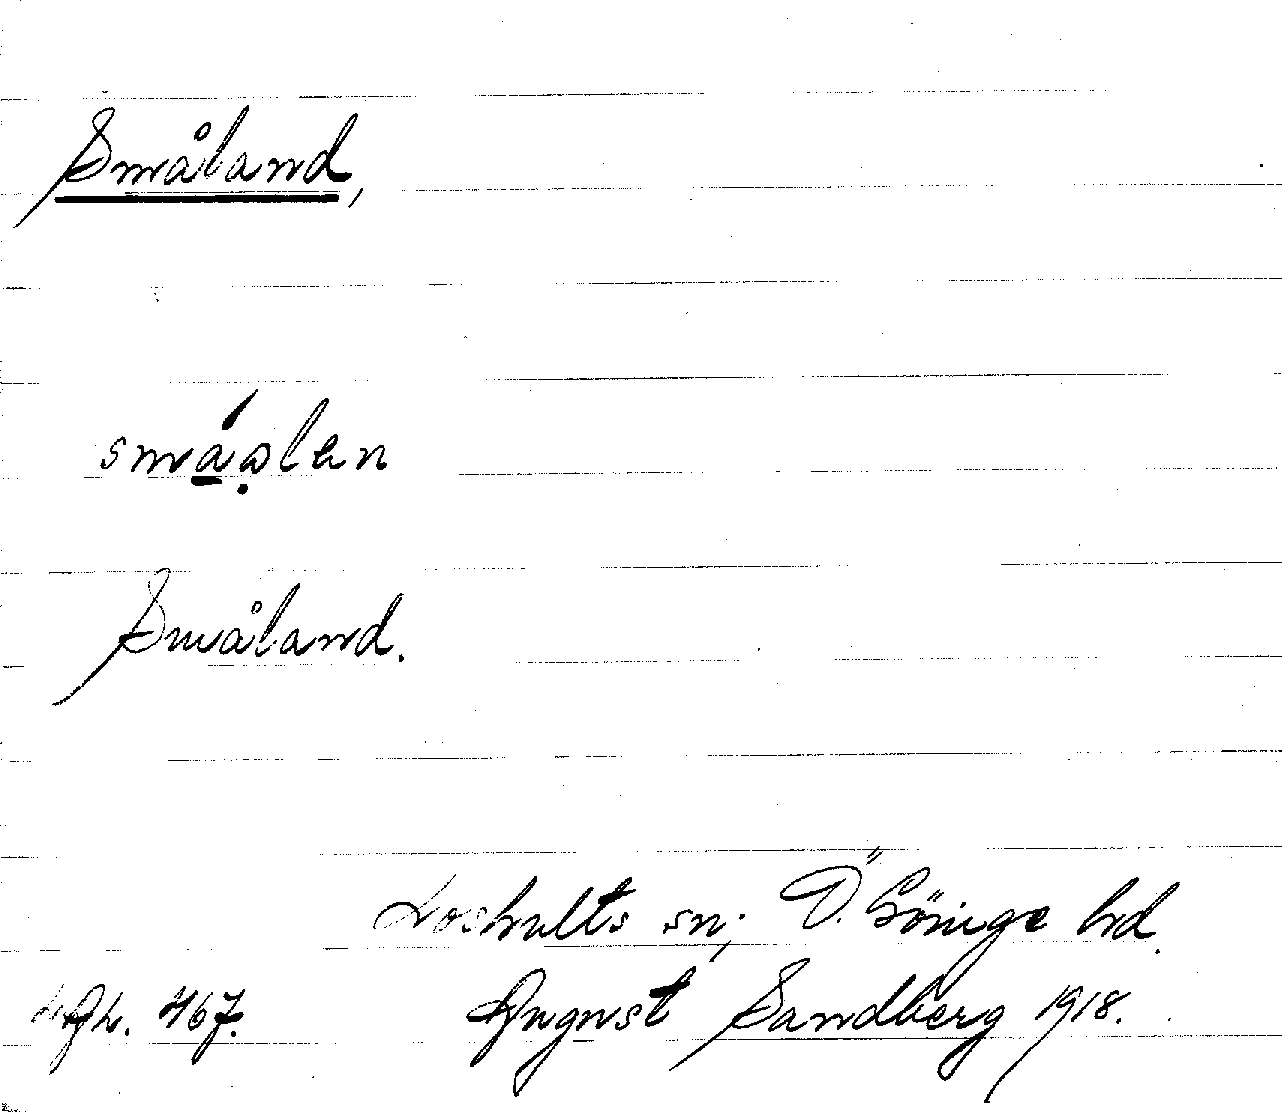 Småland,
småålen
Småland.
Loshults sn; Ö. Göinge hd.
August Sandberg 1918.